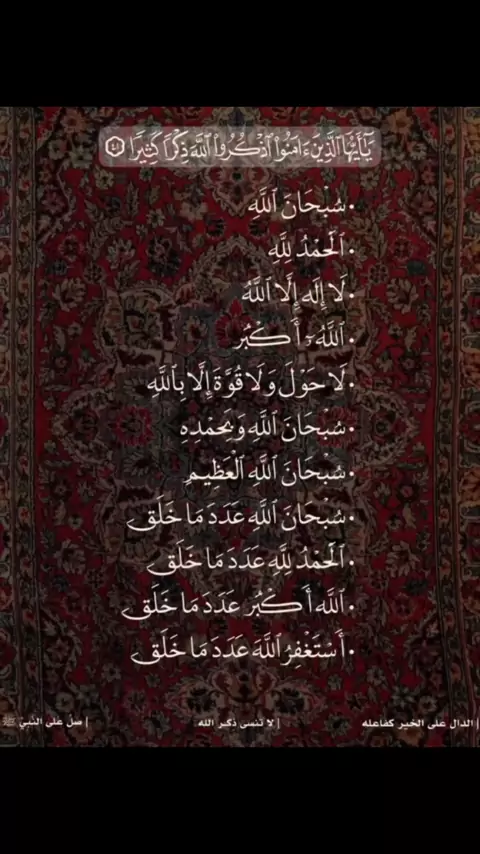 يَٰٓأَيُّهَا ٱلَّذِينَ ءَامَنُوا۟ ٱذْكُرُوا۟ ٱللَّهَ ذِكْرًا كَثِيرًا ٤١
• سُبْحَانَ ٱللَّهِ
• ٱلْحَمْدُ لِلَّهِ
• لَا إِلَه إِلَّا ٱللَّهُ
• ٱللَّهُ أَكْبَر
• لَا حَوْلَ وَلَا قُوَّةَ إِلَّا بِٱللَّهِ
• سُبْحَانَ ٱللَّهِ وَبِحَمْدِهِ
• سُبْحَانَ ٱللَّهِ ٱلْعَظِيمِ
• سُبْحَانَ ٱللَّهِ عَدَدَ مَا خَلَق
• ٱلْحَمْدُ لِلَّهِ عَدَدَ مَا خَلَق
• ٱللَّه أَكْبَرَ عَدَدَ مَا خَلَق
• أَسْتَغْفِرُ ٱللَّهَ عَدَدَ مَا خَلَق
| الدال على الخير كفاعله | لا تنسى ذكر الله | صل على النبي ﷺ